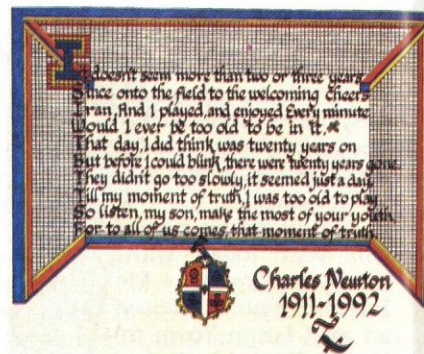 It doesn't seem more than two or three years
Since onto the field to the welcoming cheers
I ran, And I played, and enjoyed Every minute
Would I ever be too old to be in it.
That day, I did think was twenty years on
But before I could blink, there were twenty years gone.
They didn't go too slowly, it seemed just a day,
Till my moment of truth, I was too old to play
So listen, my son, make the most of your youth,
For to all of us comes, that moment of truth.
Charles Newton
1911-1992